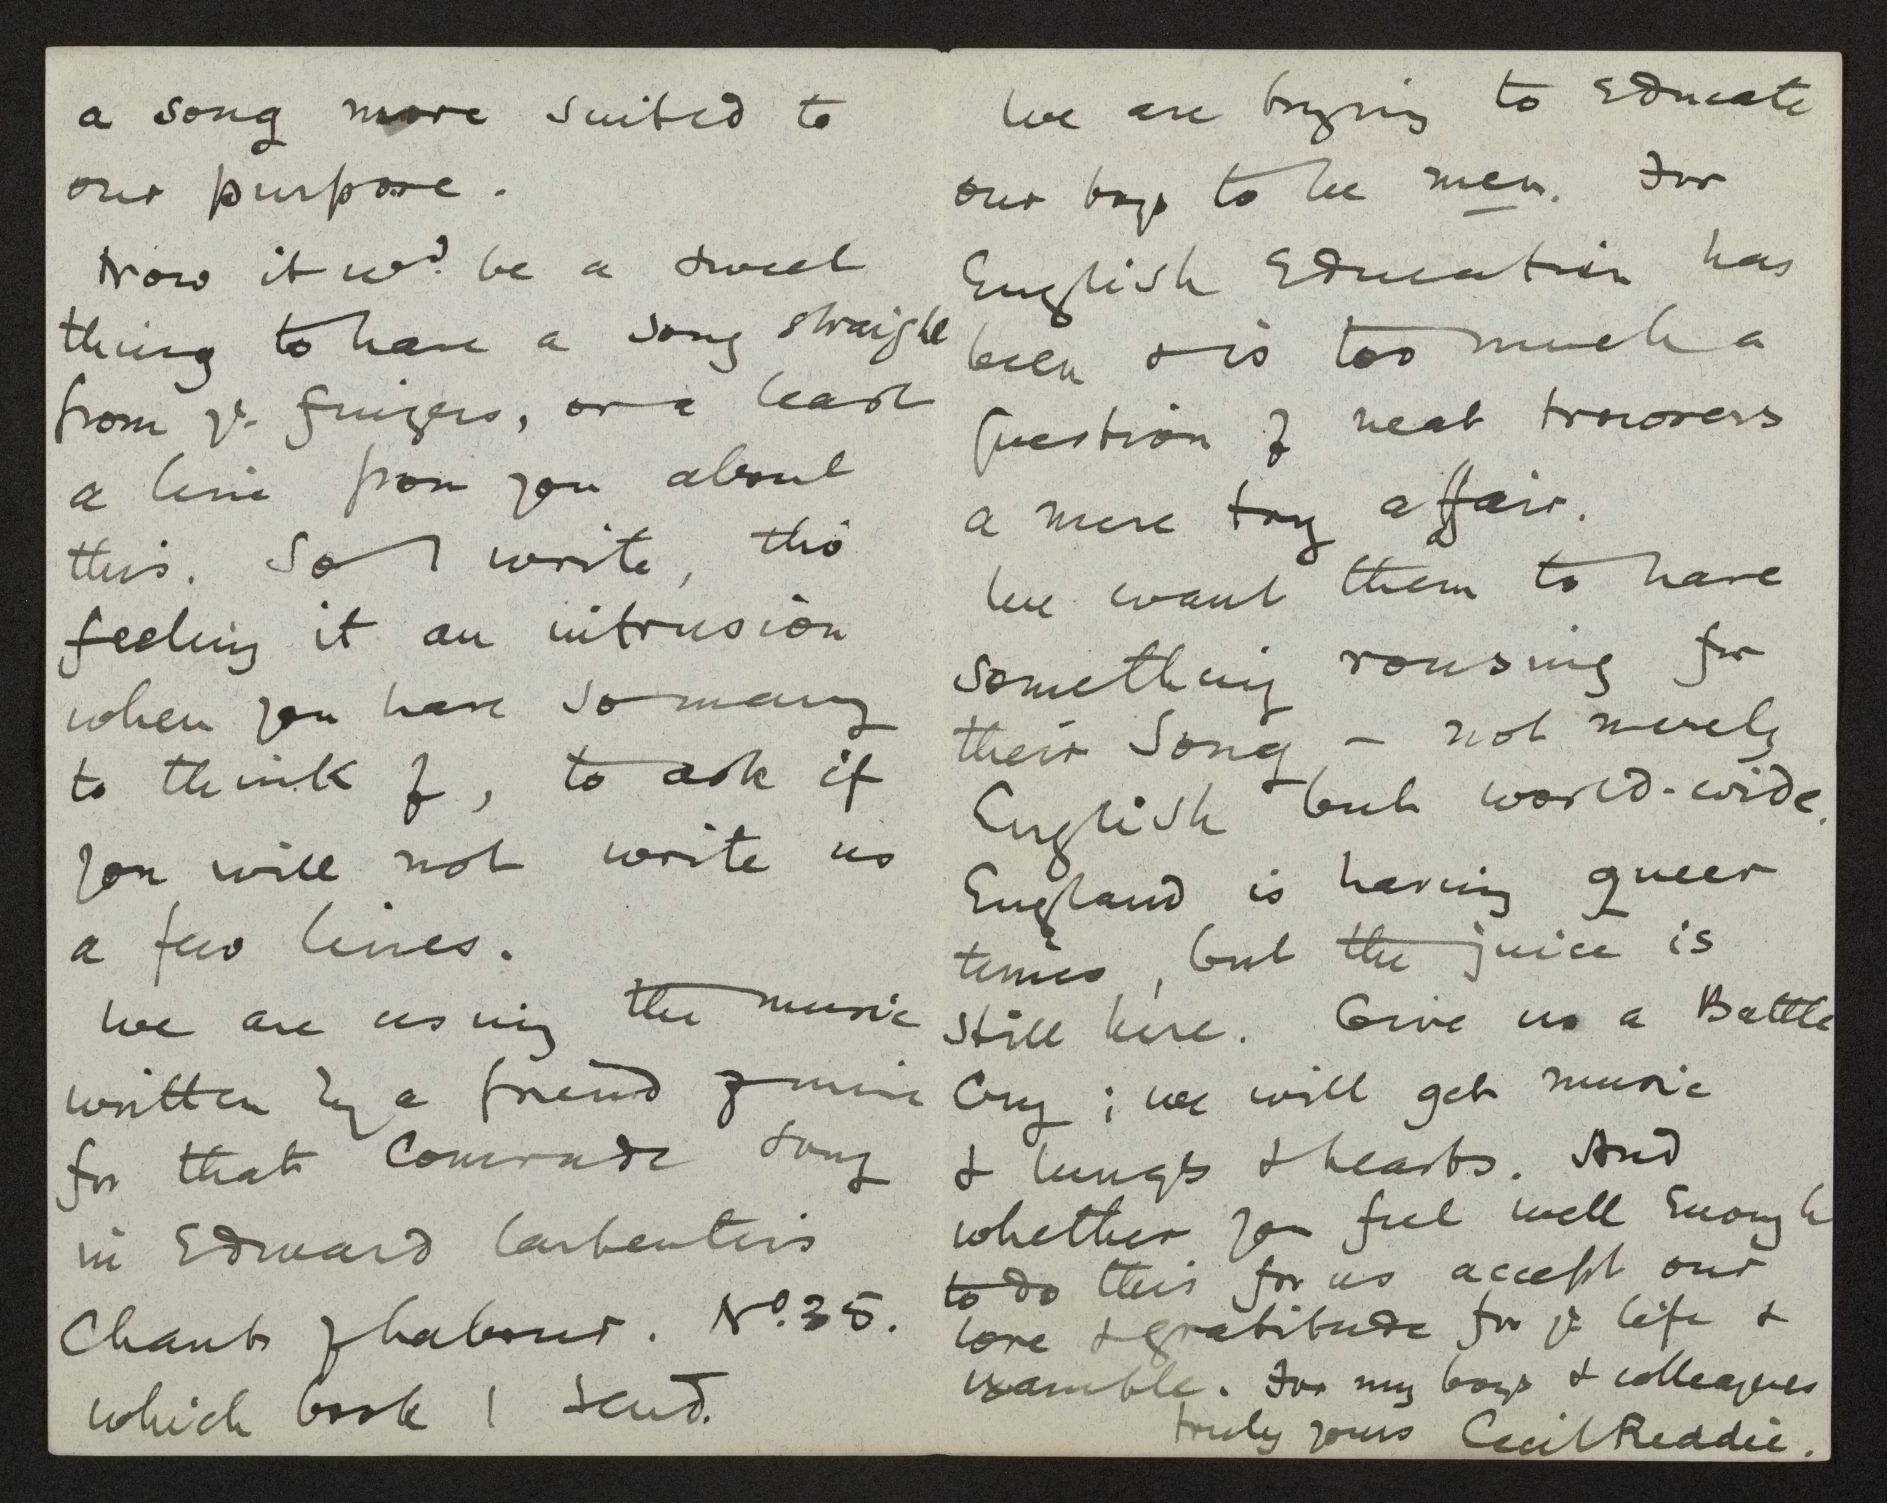 a song more suited to
our purpose.
Now it wd. be a sweet
thing to have a song straight
from yr. fingers, or a least
a line from you about
this. So I write, tho'
feeling it an intrusion
when you have so many
to think of, to ask if
you will not write us
a few lines.
We are using the music
written by a friend of mine
for that Comrade song
in Edward Carpenter's
Chants of Labour. No. 35.
which book I send.
We are trying to Educate
our boys to be men. For
English Education has
been & is too much a
question of neat trowsers
a mere toy affair.
We want them to have
something rousing for
their Song - not merely
English but world-wide.
England is having queer
times, but the juice is
still here. Give us a Battle
Cry; we will get music
& lungs & hearts. And
whether you feel well Enough
to do this for us accept our
love & gratitude for yr. life &
example. For my boys & colleagues
truly yours Cecil Reddie.